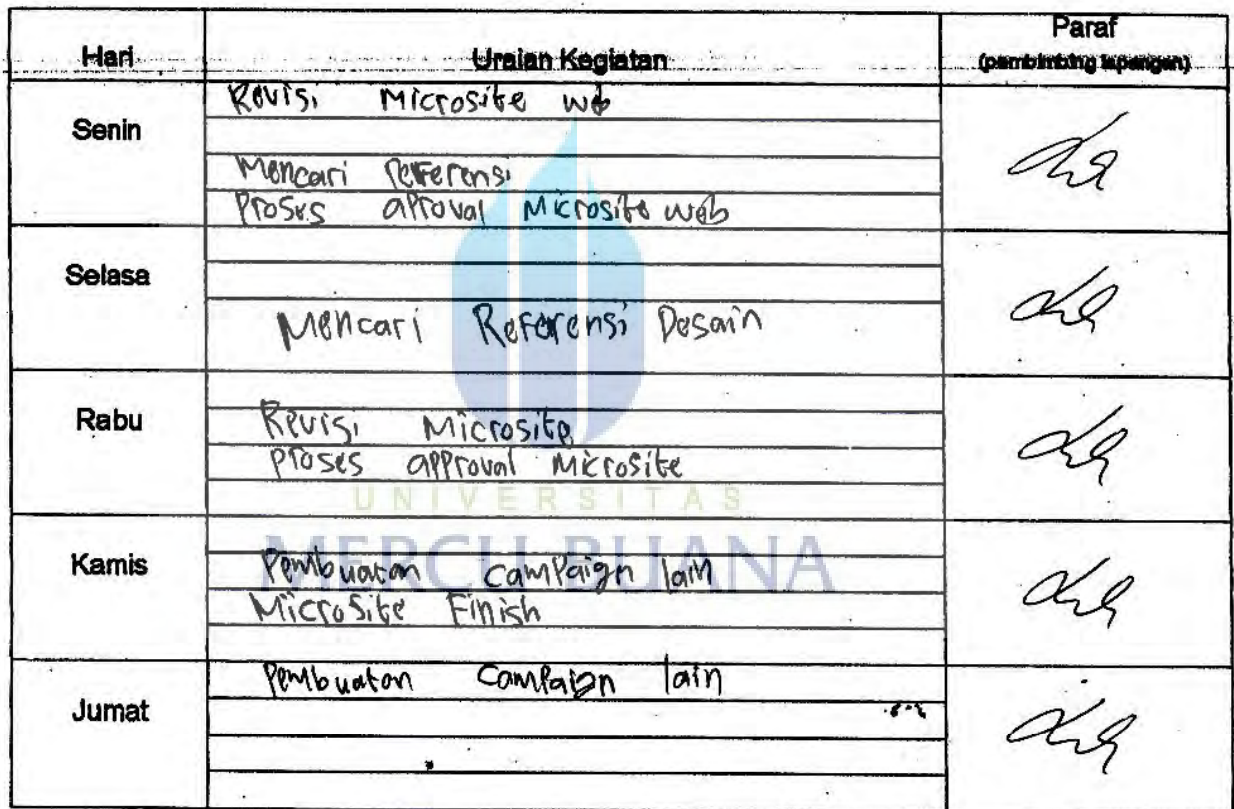 Hari Uraian Kegiatan Paraf
(pembimbing lapangan)
Senin
Revisi Microsite web
Mencari referensi
Proses aproval Microsite web
Selasa
Mencari Referensi Desain
Rabu
Revisi Microsite
proses approval Microsite
UNIVERSITAS
MERCU BUANA
Kamis
Pembuatan campaign lain
Microsite Finish
Jumat
Pembuatan campaign lain